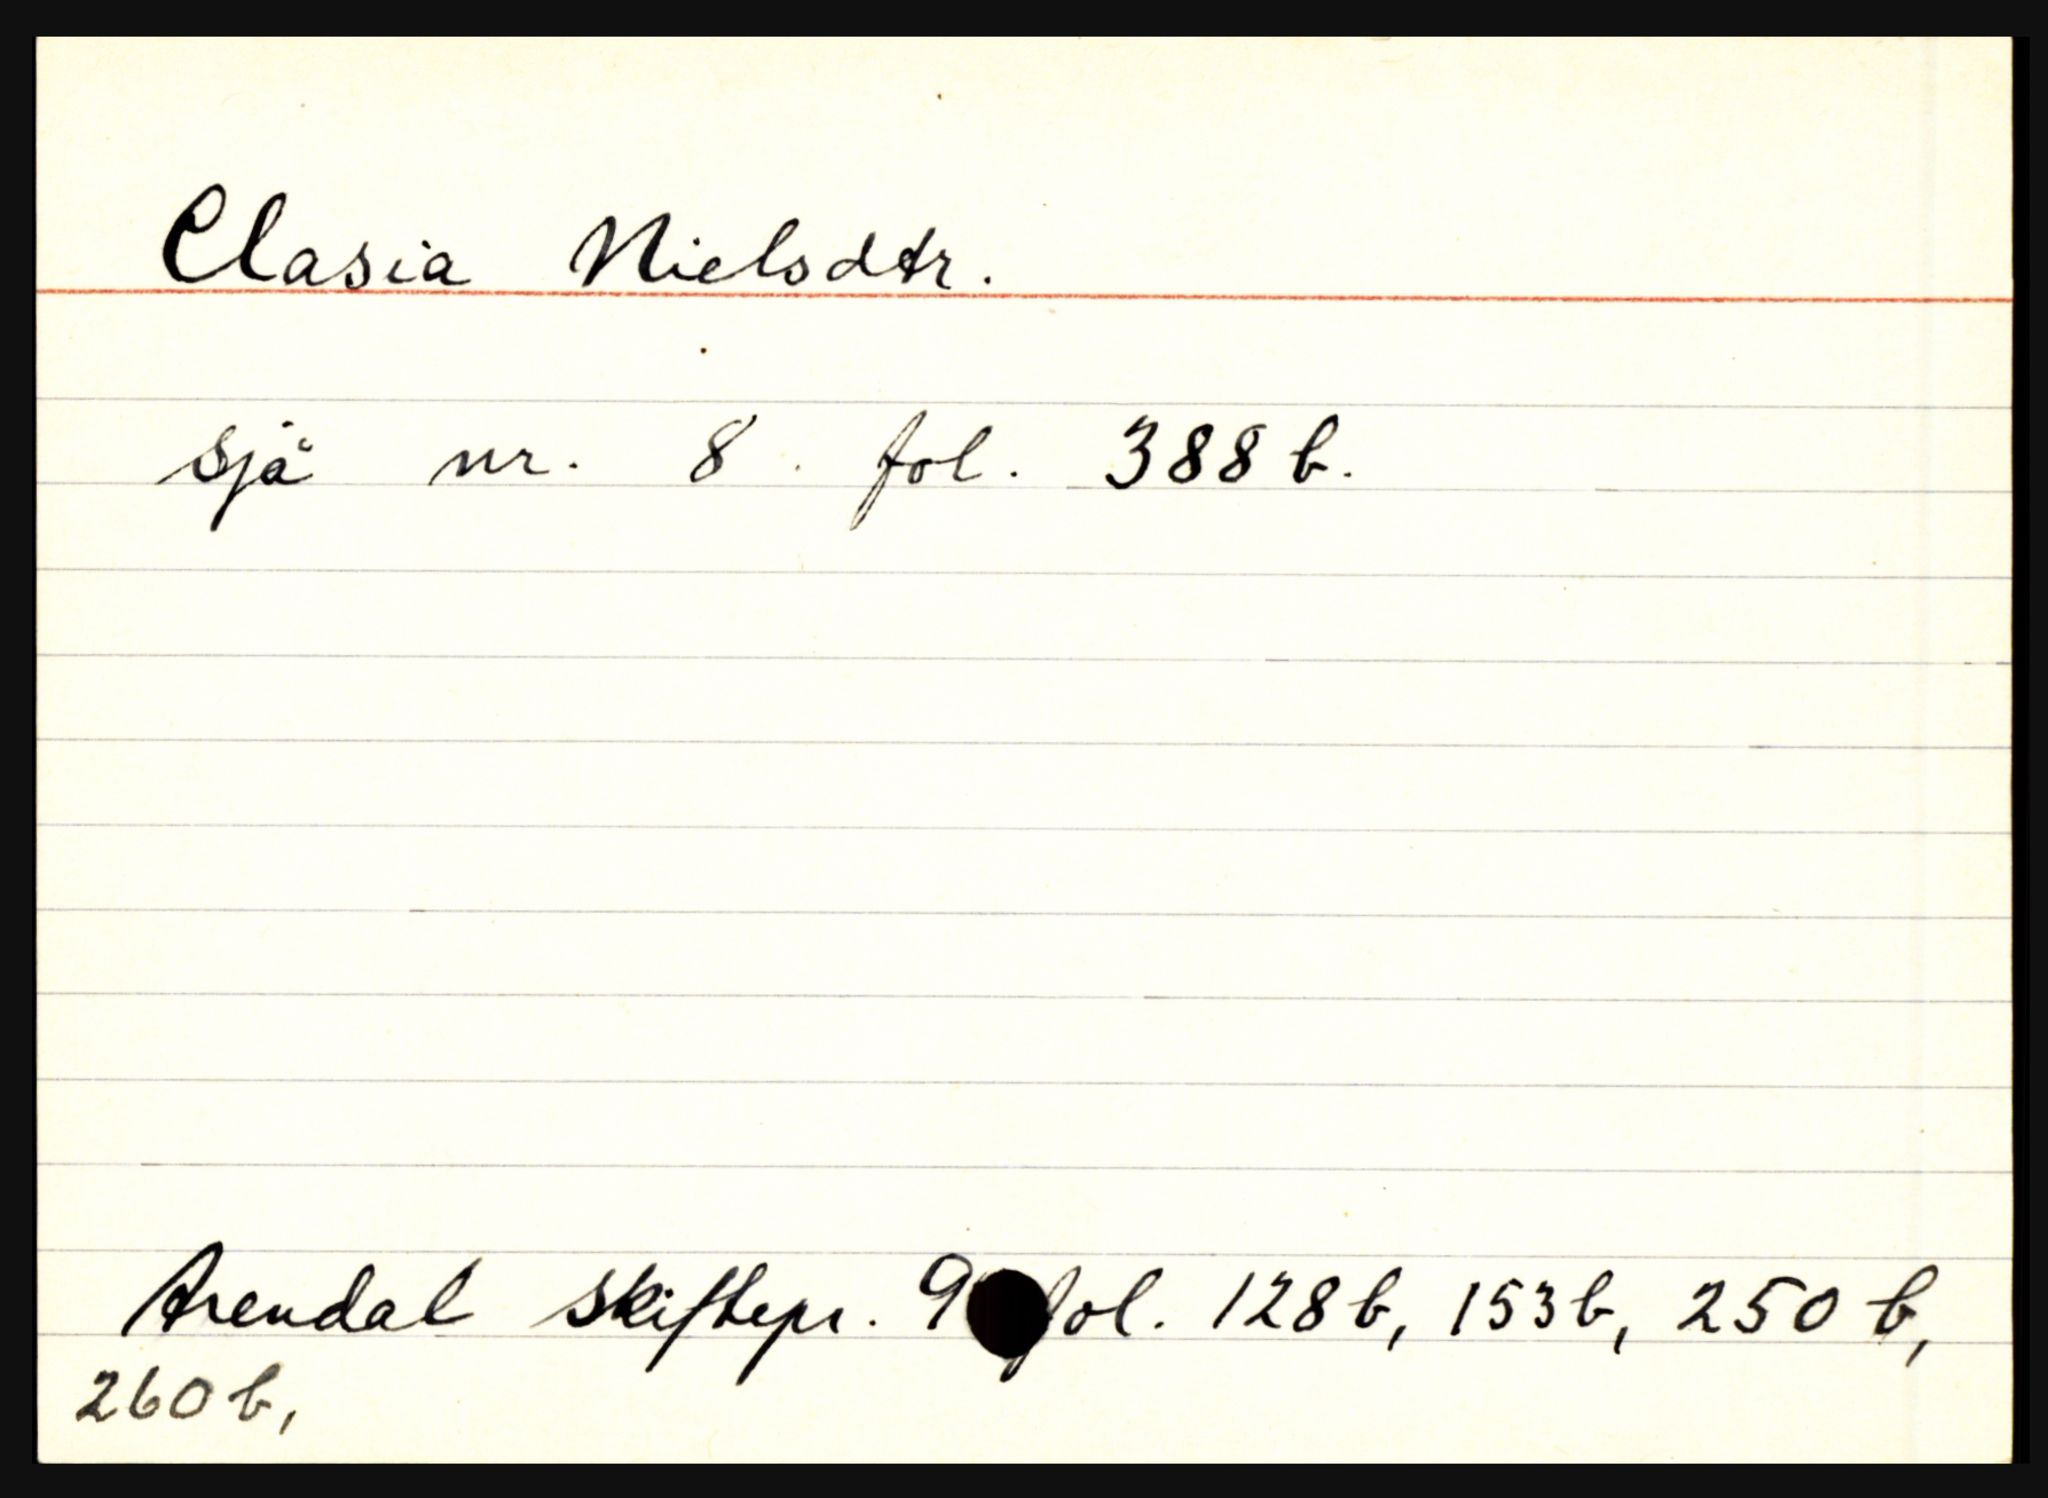 Clasia Nielsdtr.
sjå nr. 8. fol. 388 b.
Arendal skiftepr. 9 fol. 128 b, 153 b, 250 b,
260 b,